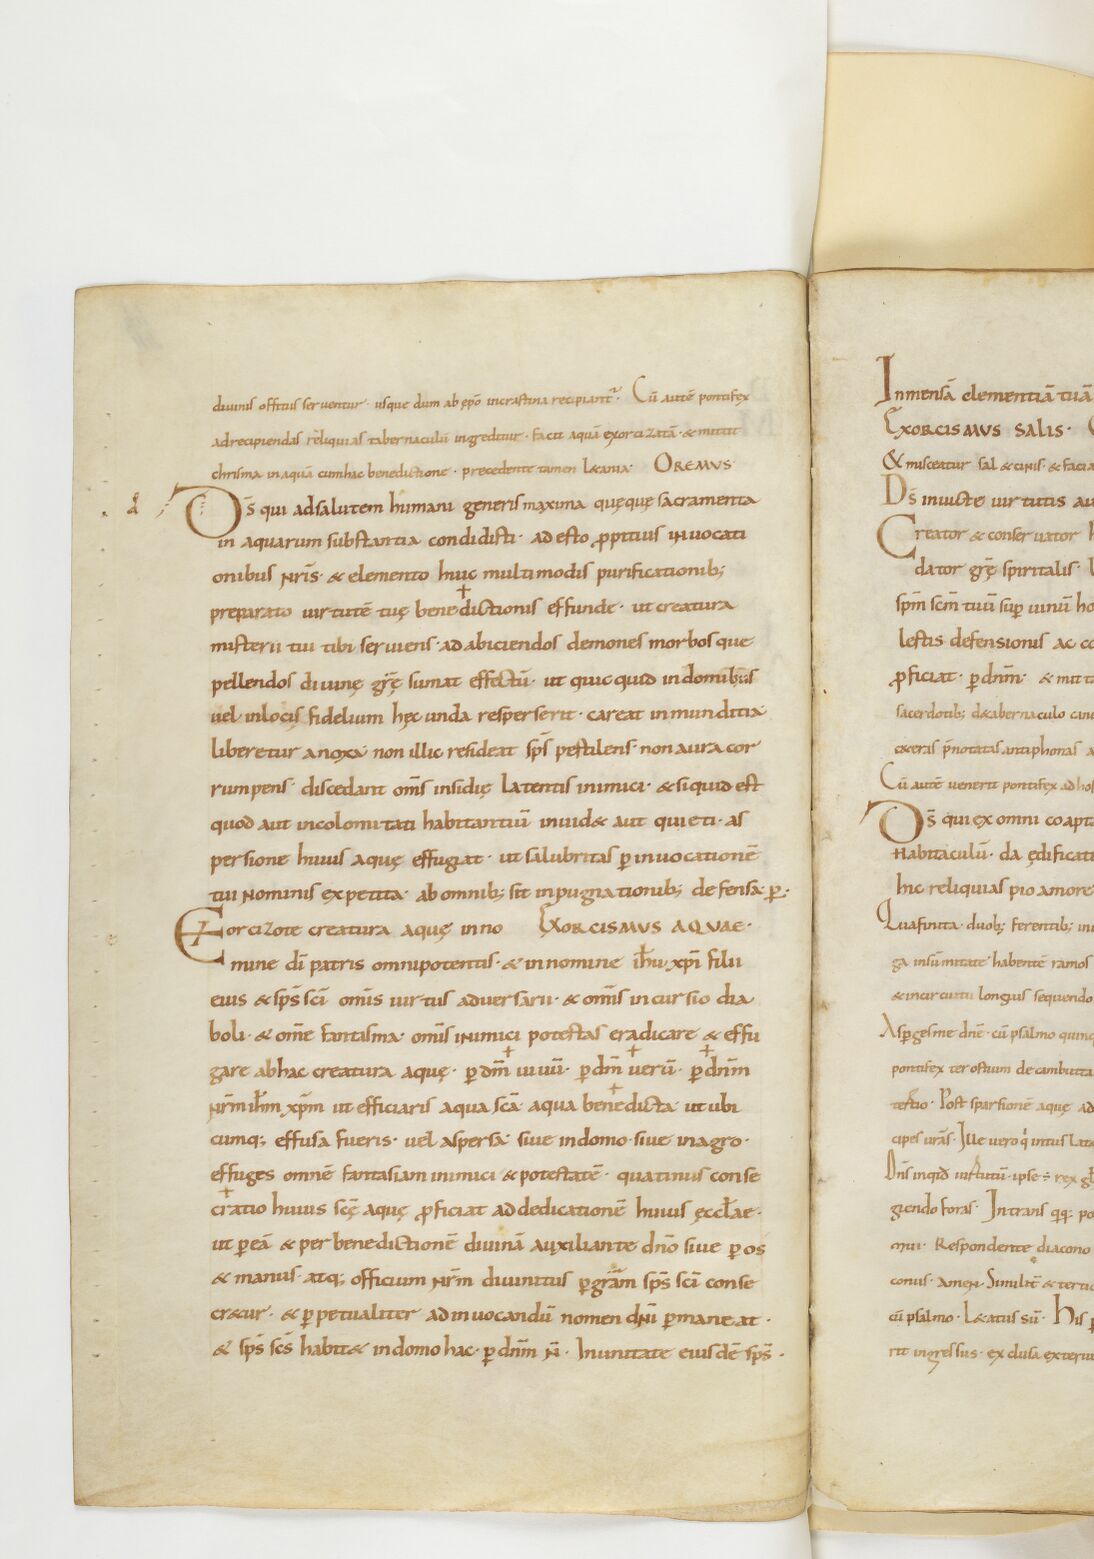 diuinis offitus seruentur · usque dum ab ep̄o incrastina recipiant᷑ · Cū autē pontifex
adrecipiendas reliquias tabernaculū ingreditur · facit aquā exorcizatā · & mittit
chrisma in aquā cumhac benedictione · precedente tamen læania · OREMVS
D̄s qui adsalutem humani generis maxima quęquę sacramenta
in aquarum substantia condidisti · ad esto ꝓpitius inuocati
onibus nr̄is · & elemento huic multimodis purificationib;
preparato uirtutē tuę bene✝dictionis effunde · ut creatura
misterii tui tibi seruiens · ad abiciendos demones morbosque
pellendos diuinę gr̄ę sumat effectū · ut quicquid indomibus
uel inlocis fidelium hęc unda resperserit · careat inmunditia
liberetur a noxa · non illic resideat sp̄s pestilens · non aura cor
rumpens · discedant om̄s insidię latentis inimici · & siquid est
quod aut incolomitati habitantiū inuid& aut quieti · as
persione huius aquę effugiat · ut salubritas ꝑ inuocationē
tui nominis expetita · ab omnib; sit inpugnationib; defensa · ꝑ ·
Exorcizo te creatura aquę in no EXORCISMVS AQVAE ·
mine dī patris omnipotentis · & in nomine ih̄u xp̄i filii
eius & sp̄s sc̄i om̄is uirtus aduersarii · & om̄is incursio dia
boli · & om̄e fantasma · om̄is inimici potestas eradicare & effu
gare abhac creatura aquę · ꝑ dm̄ ✝ uiuū · ꝑ dm̄ ✝ uerū · ꝑ dn̄m ✝
nr̄m ih̄m xp̄m ut efficiaris aqua sc̄a · aqua bene✝dicta · ut ubi
cumq; effusa fueris · uel aspersa · siue indomo · siue inagro ·
effuges omnē fantasiam inimici & potestatē · quatinus conse
cr✝atio huius sc̄ę aquę ꝓficiat ad dedicationē huius ęccl̄ae ·
ut ꝑ eā & per benedictionē diuinā auxiliante dn̄o siue ꝑ os
& manus · atq; officium nr̄m diuinitus ꝑ grām sp̄s sc̄i conse
cr&ur · & ꝑpetualiter ad inuocandū nomen dn̄i ꝑmaneat ·
& sp̄s sc̄s habit& indomo hac · ꝑ dn̄m n̄ · Inunitate eiusdē sp̄s ·
Inmensā clementiā tuā
EXORCISMVS SALIS ·
& misceatur sal & cinis · & facia
D̄s inuicte uirtutis au
Creator & conseruator h
dator gr̄ę spiritalis ·
sp̄m sc̄m tuū suꝑ uinū ho
lestis defensionis ac co
ꝓficiat · ꝑ dn̄m · & mitt
sacerdotib; d&abernaculo cum
ceteris p̄notatas antiphonas a
Cū autē uenerit pontifex ad hos
D̄s qui ex omni coapt
habitaculū · da ędificati
hic reliquias pio amore
Quafinita · duob; ferentib; in
ga insūmitate habentē ramos
& incircuitu longius sequendo
Asꝑges me dn̄e · cū psalmo quinq
pontifex ter ostium de cambutta
tertio · Post sparsionē aquę ad
cipes ur̄as · Ille uero q̇ intus lata
giendo foras · Intrans qq; po
mui · Respondente diacono
conus · Amen · Similit̄ & tertio
cū psalmo · L&atus sū · His p
rit ingressus · exclusa exterius